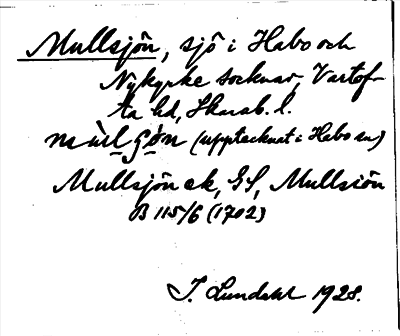 Mullsjön, sjö i Habo och
Nykyrke socknar, Vartof-
ta hd, Skarab. l.
(upptecknat i Habo sn)
Mullsjön ek, GS, Mullsiön
B 115/6 (1702)
J. Lundahl 1928.